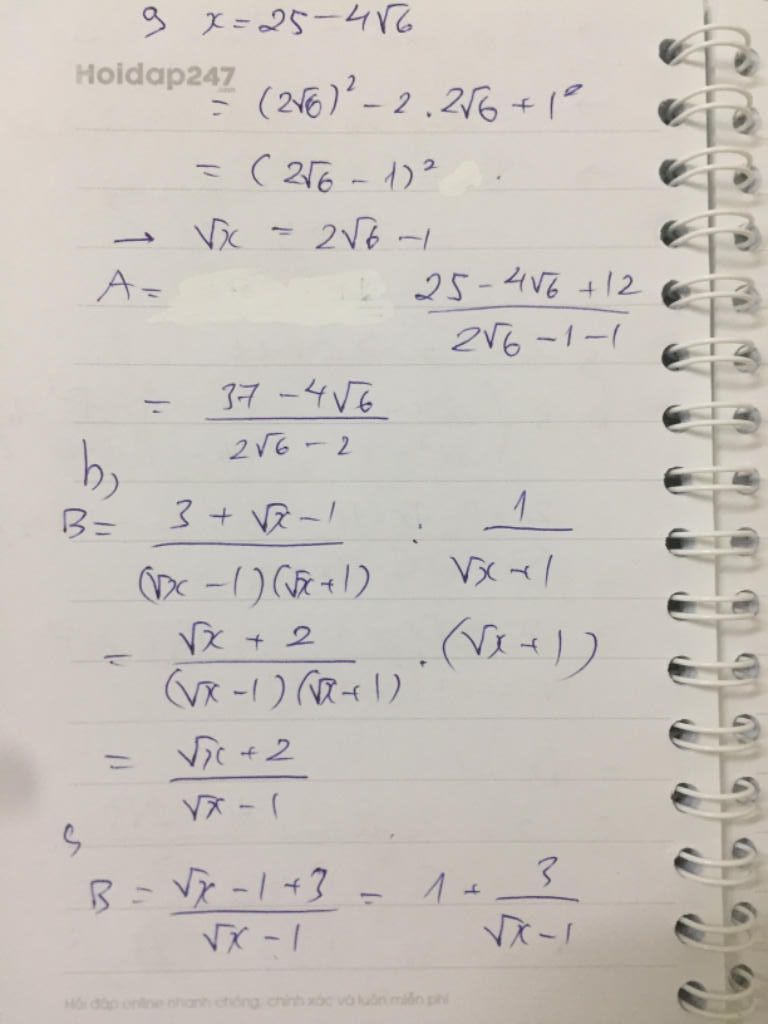 a, x = 25 - 4√6
Hoidap247
.com
= (2√6)² - 2 . 2√6 + 1²
= (2√6 - 1)²
→ √x = 2√6 - 1
A = (25 - 4√6 + 12) / (2√6 - 1 - 1)
= (37 - 4√6) / (2√6 - 2)
b,
B = (3 + √x - 1) / ((√x - 1)(√x + 1)) : 1 / (√x + 1)
= (√x + 2) / ((√x - 1)(√x + 1)) . (√x + 1)
= (√x + 2) / (√x - 1)
c,
B = (√x - 1 + 3) / (√x - 1) = 1 + 3 / (√x - 1)
Hỏi đáp online nhanh chóng, chính xác và luôn miễn phí